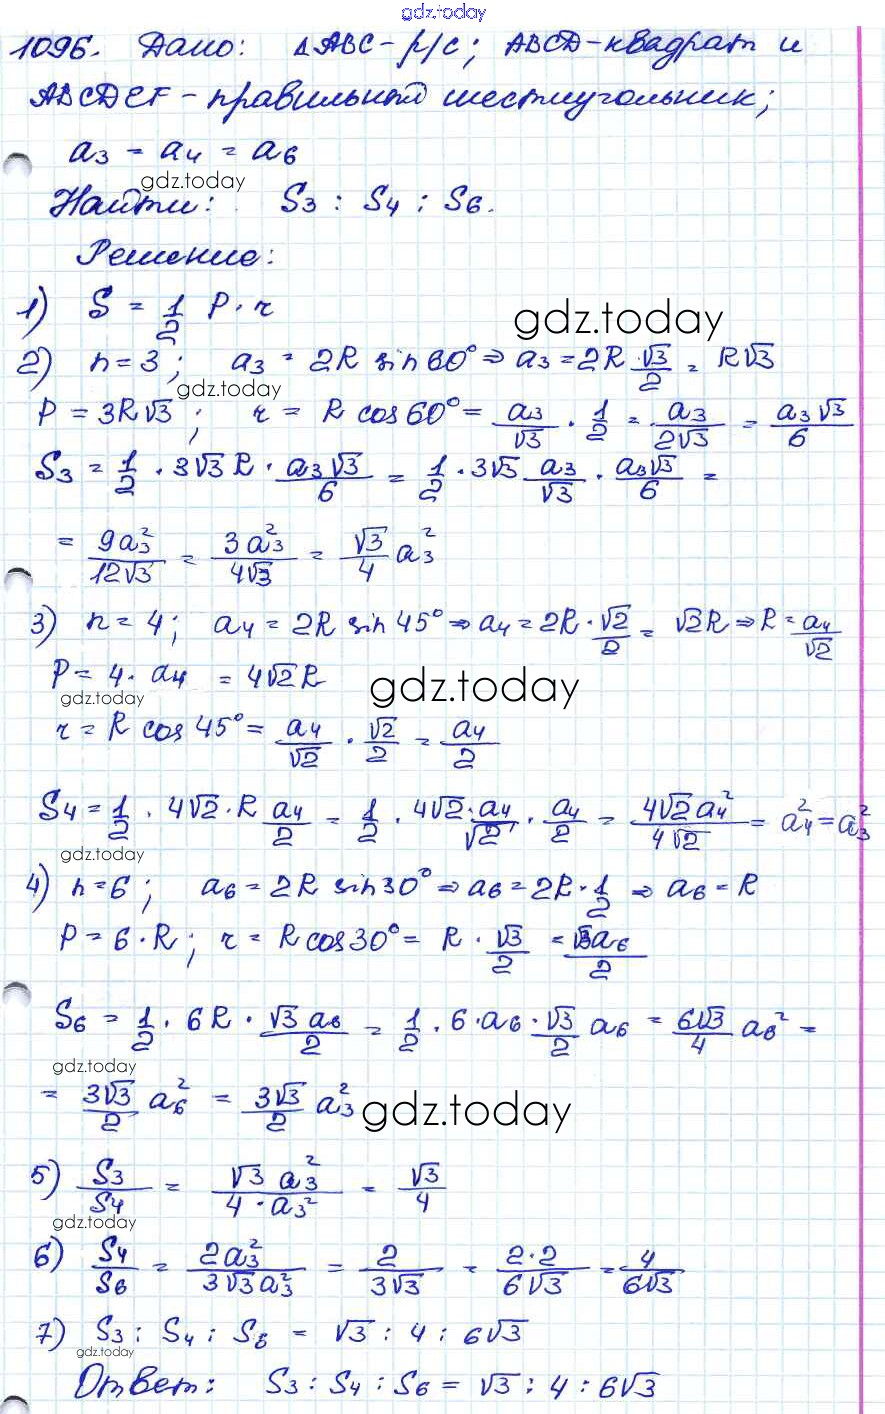 gdz.today
1096. Дано: △ABC - р/с; ABCD - квадрат и
ABCDEF - правильный шестиугольник;
a₃ = a₄ = a₆
gdz.today
Найти: S₃ : S₄ : S₆.
Решение:
1) S = 1/2 P · r
gdz.today
2) n = 3; a₃ = 2R sin 60° ⇒ a₃ = 2R · √3/2 = R√3
gdz.today
P = 3R√3; r = R cos 60° = a₃/√3 · 1/2 = a₃/2√3 = a₃√3/6
S₃ = 1/2 · 3√3 R · a₃√3/6 = 1/2 · 3√3 a₃/√3 · a₃√3/6 =
= 9a₃²/12√3 = 3a₃²/4√3 = √3/4 a₃²
3) n = 4; a₄ = 2R sin 45° ⇒ a₄ = 2R · √2/2 = √2R ⇒ R = a₄/√2
P = 4 · a₄ = 4√2R
gdz.today
gdz.today
r = R cos 45° = a₄/√2 · √2/2 = a₄/2
S₄ = 1/2 · 4√2 · R a₄/2 = 1/2 · 4√2 · a₄/√2 · a₄/2 = 4√2a₄²/4√2 = a₄² = a₃²
gdz.today
4) n = 6; a₆ = 2R sin 30° ⇒ a₆ = 2R · 1/2 ⇒ a₆ = R
P = 6 · R; r = R cos 30° = R · √3/2 = √3a₆/2
S₆ = 1/2 · 6R · √3 a₆/2 = 1/2 · 6 · a₆ · √3/2 a₆ = 6√3/4 a₆² =
gdz.today
= 3√3/2 a₆² = 3√3/2 a₃²
gdz.today
5) S₃/S₄ = √3 a₃²/4 · a₃² = √3/4
gdz.today
6) S₄/S₆ = 2a₃²/3√3a₃² = 2/3√3 = 2·2/6√3 = 4/6√3
7) S₃ : S₄ : S₆ = √3 : 4 : 6√3
gdz.today
Ответ: S₃ : S₄ : S₆ = √3 : 4 : 6√3